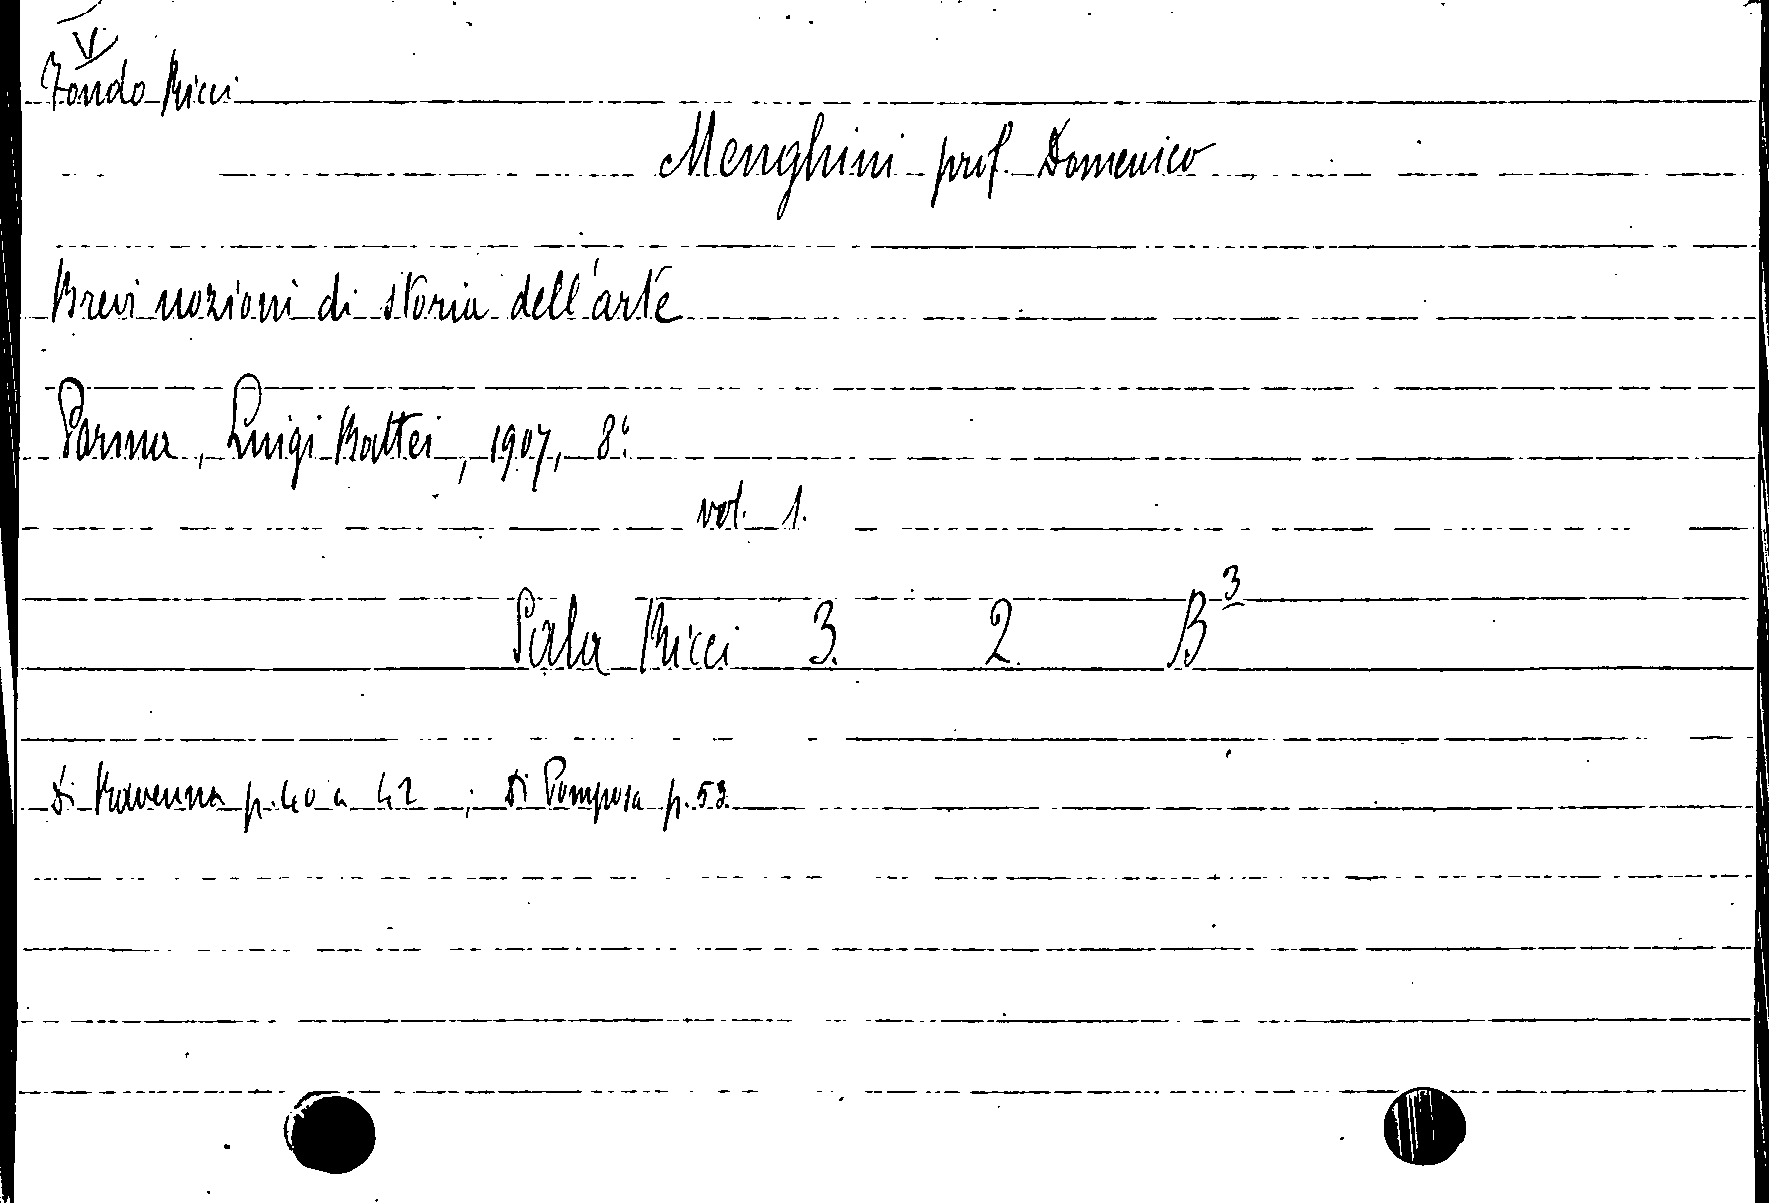 V
Fondo Ricci
Menghini prof. Domenico
Brevi nozioni di storia dell'arte
Parma, Luigi Battei, 1907, 8°.
vol. 1.
Sala Ricci 3. 2. B³
Di Ravenna p. 40 a 42 ; Di Pomposa p. 53.